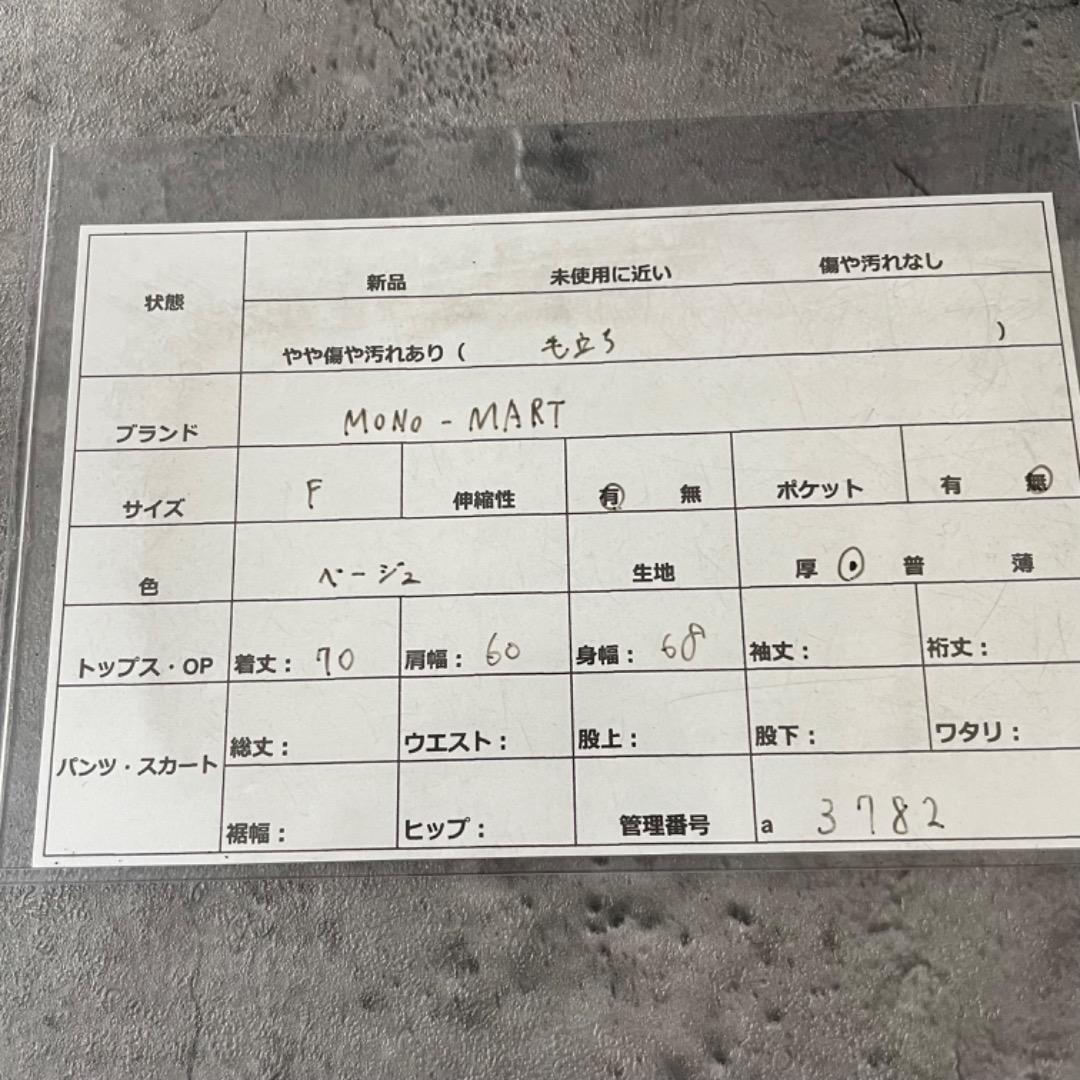 状態 新品 未使用に近い 傷や汚れなし
やや傷や汚れあり ( 毛立ち )
ブランド MONO - MART
サイズ F 伸縮性 有 無 ポケット 有 無
色 ベージュ 生地 厚 普 薄
トップス・OP 着丈: 70 肩幅: 60 身幅: 68 袖丈: 裄丈:
パンツ・スカート 総丈: ウエスト: 股上: 股下: ワタリ:
裾幅: ヒップ: 管理番号 a 3782